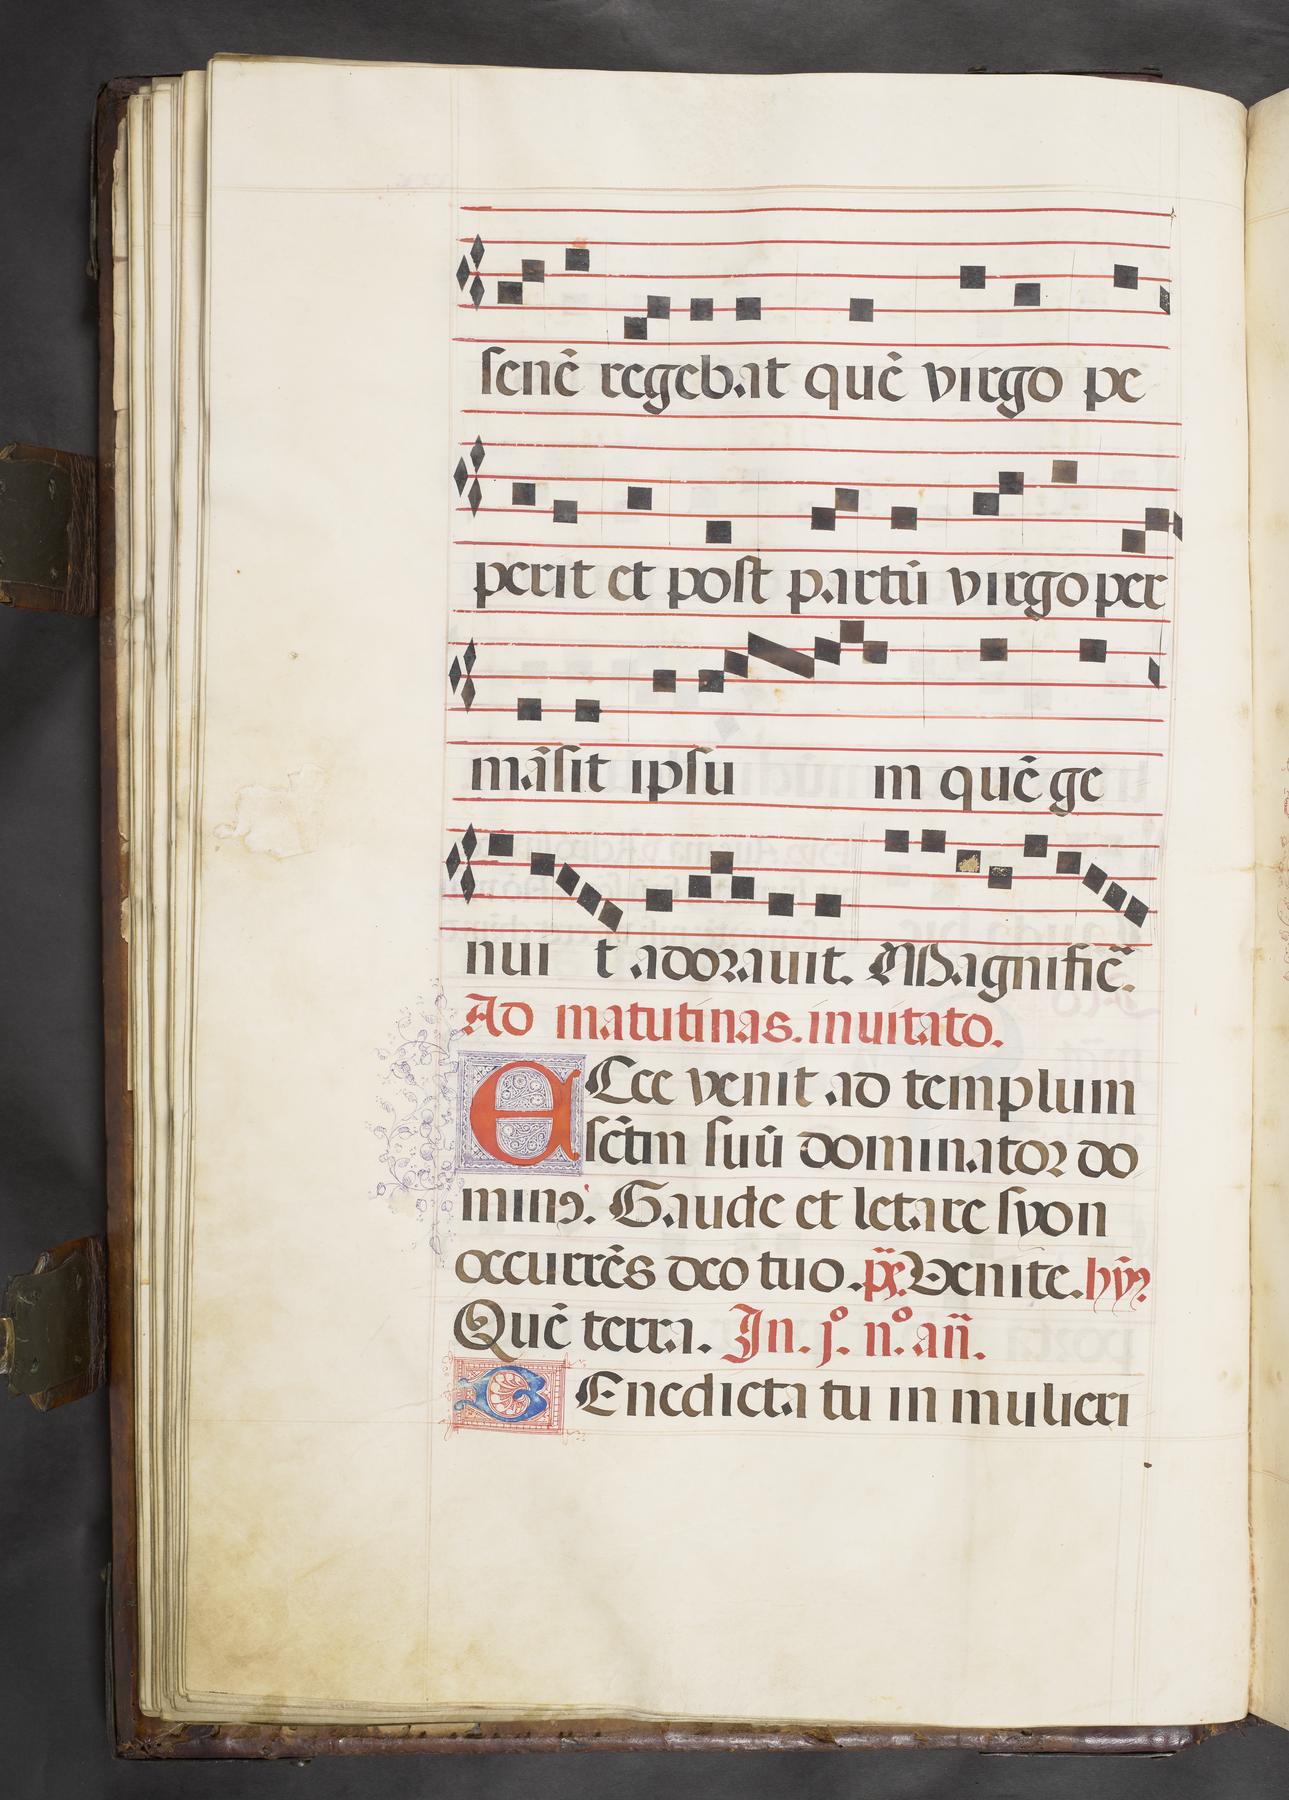 senē regebat quē virgo pe
perit et post partū virgo per
māsit ipsu m quē ge
nui t adorauit. Magnific̄.
Ad matutinas. inuitato.
ECce venit ad templum
sc̄tm suū dominator do
minꝰ. Gaude et letare syon
occurrēs deo tuo. p̄s. Venite. hȳ.
Quē terra. In. jº. nº. an̄.
BEnedicta tu in mulieri